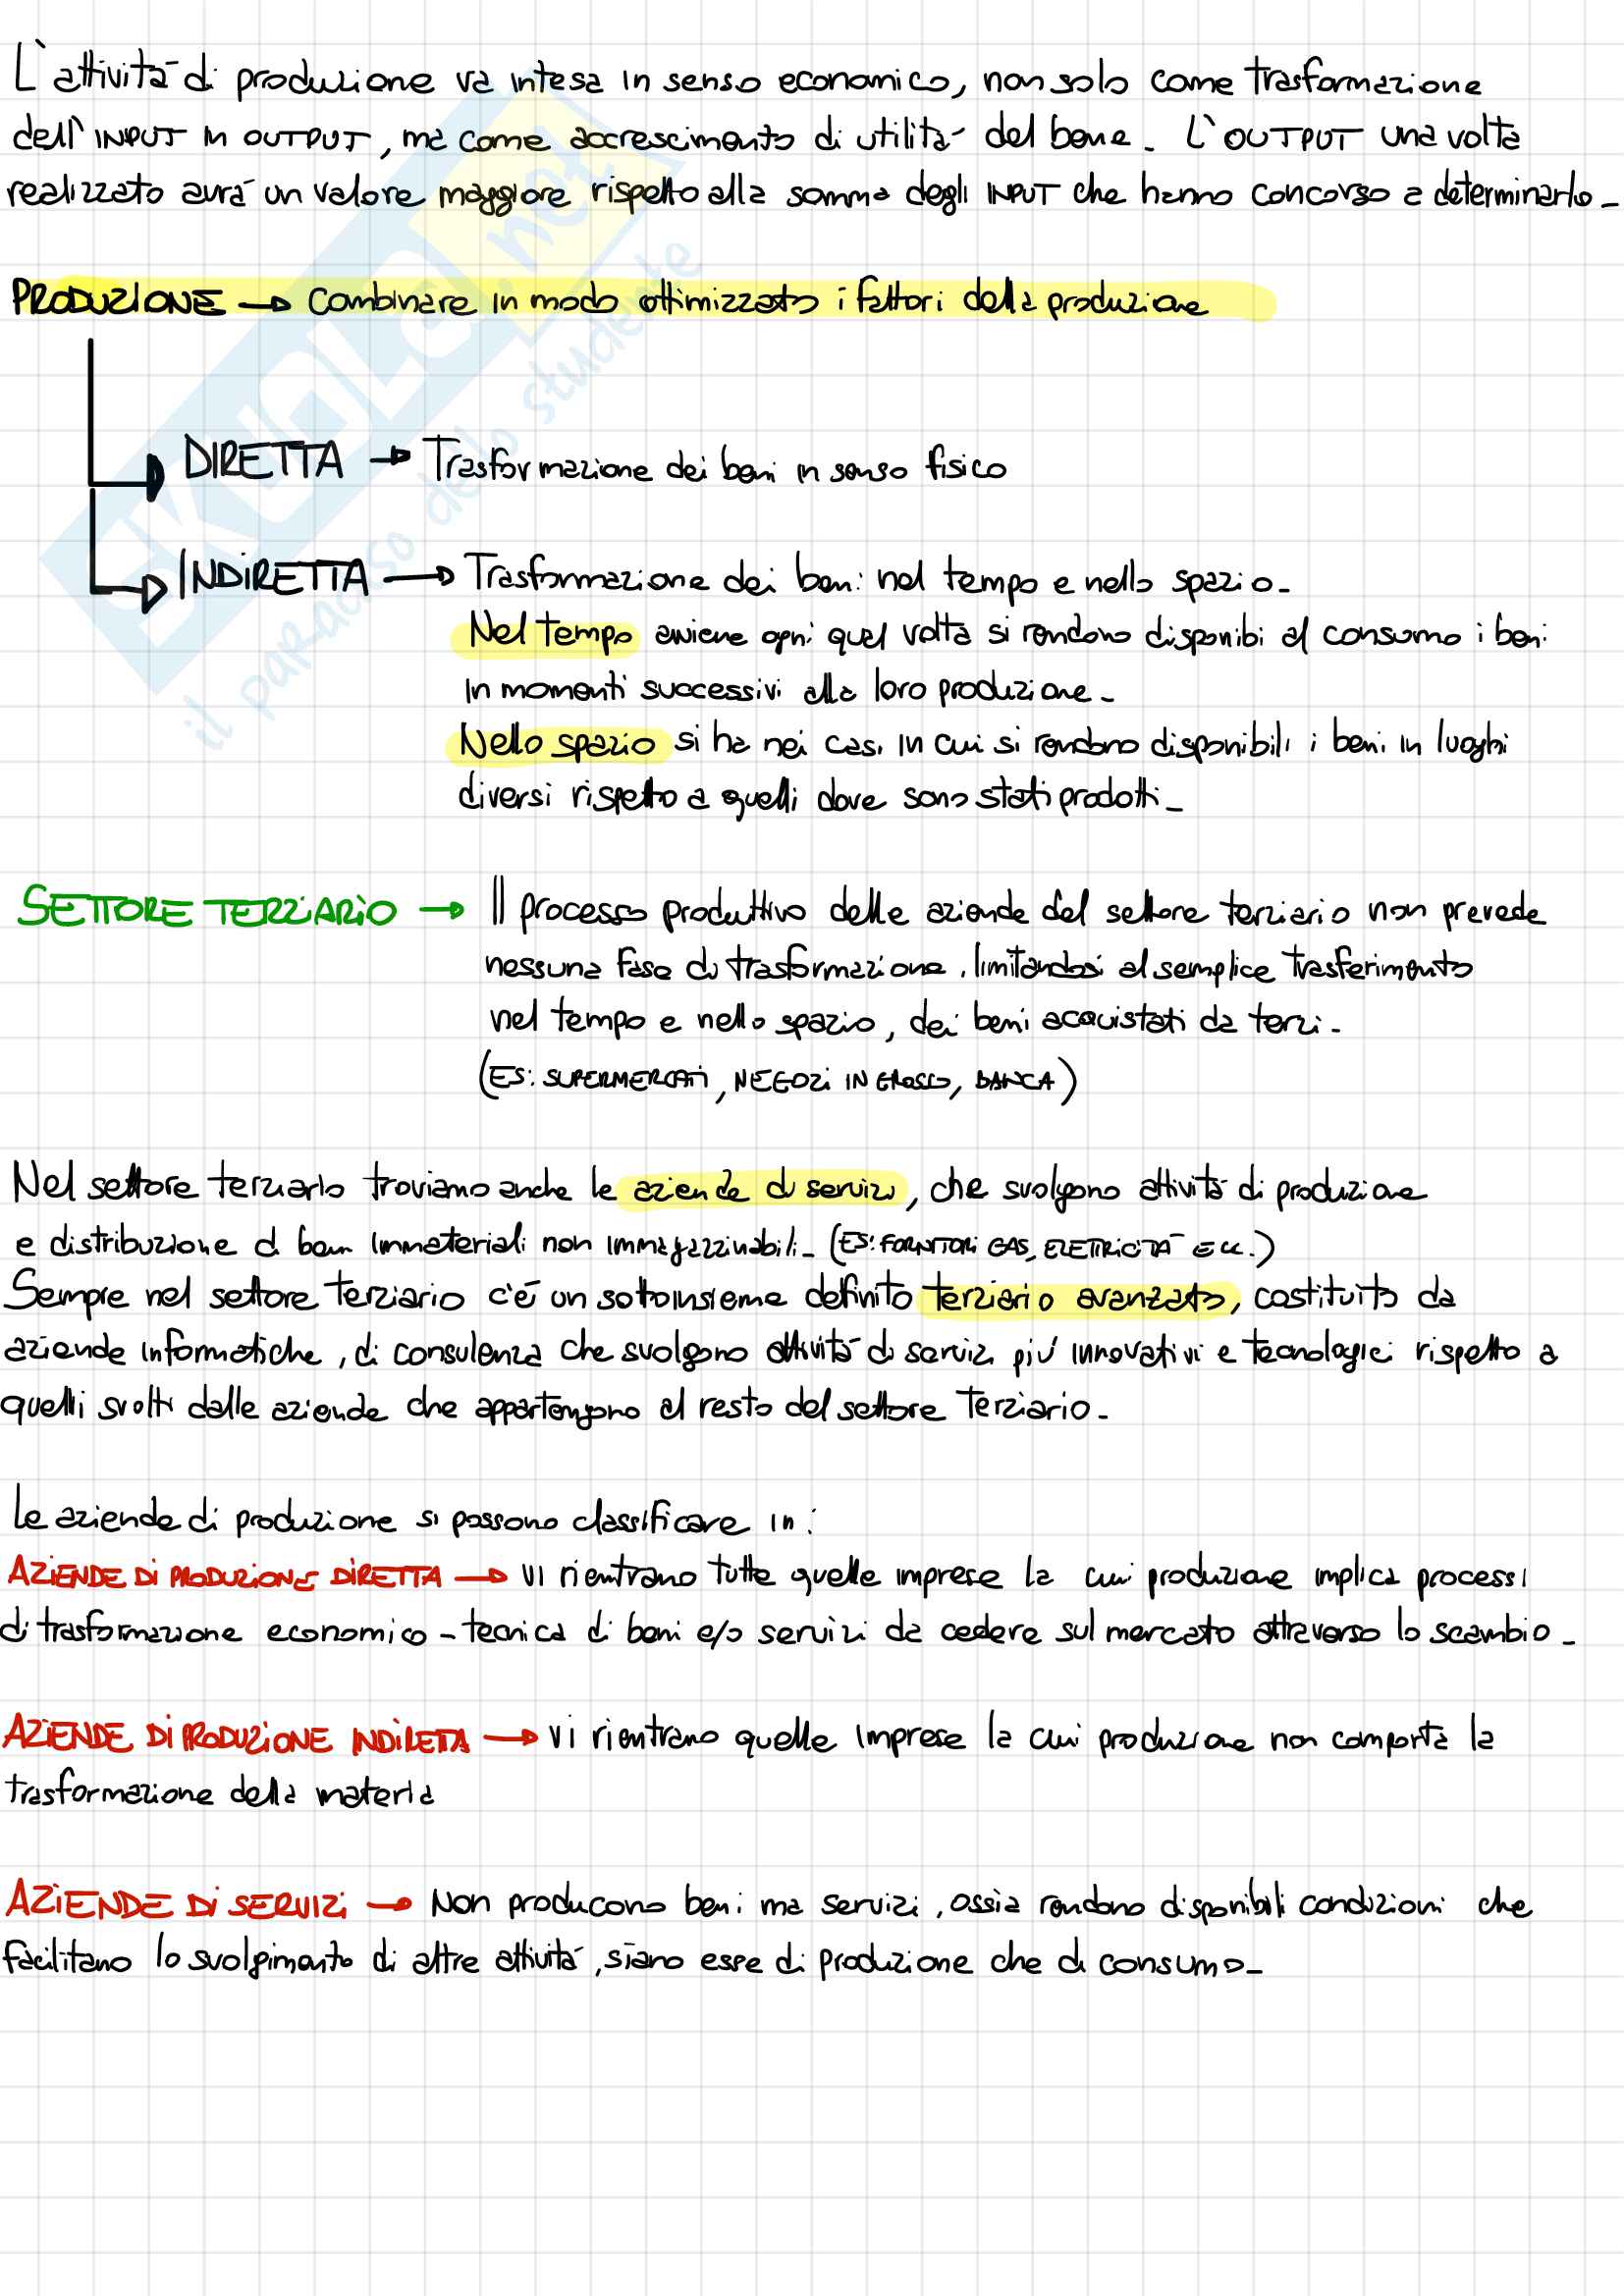 L'attività di produzione va intesa in senso economico, non solo come trasformazione
dell'INPUT in OUTPUT, ma come accrescimento di utilità del bene. L'OUTPUT una volta
realizzato avrà un valore maggiore rispetto alla somma degli INPUT che hanno concorso a determinarlo.
PRODUZIONE → Combinare in modo ottimizzato i fattori della produzione
DIRETTA → Trasformazione dei beni in senso fisico
INDIRETTA → Trasformazione dei beni nel tempo e nello spazio.
Nel tempo avviene ogni qual volta si rendono disponibi al consumo i beni
in momenti successivi alla loro produzione.
Nello spazio si ha nei casi in cui si rendono disponibili i beni in luoghi
diversi rispetto a quelli dove sono stati prodotti.
SETTORE TERZIARIO → Il processo produttivo delle aziende del settore terziario non prevede
nessuna fase di trasformazione, limitandosi al semplice trasferimento
nel tempo e nello spazio, dei beni acquistati da terzi.
(ES: SUPERMERCATI, NEGOZI IN GROSSO, BANCA)
Nel settore terziario troviamo anche le aziende di servizi, che svolgono attività di produzione
e distribuzione di beni immateriali non immagazzinabili. (ES: FORNITORI GAS, ELETTRICITÀ ECC.)
Sempre nel settore terziario c'è un sottoinsieme definito terziario avanzato, costituito da
aziende informatiche, di consulenza che svolgono attività di servizi più innovativi e tecnologici rispetto a
quelli svolti dalle aziende che appartengono al resto del settore terziario.
Le aziende di produzione si possono classificare in:
AZIENDE DI PRODUZIONE DIRETTA → vi rientrano tutte quelle imprese la cui produzione implica processi
di trasformazione economico-tecnica di beni e/o servizi da cedere sul mercato attraverso lo scambio.
AZIENDE DI PRODUZIONE INDIRETTA → vi rientrano quelle imprese la cui produzione non comporta la
trasformazione della materia
AZIENDE DI SERVIZI → Non producono beni ma servizi, ossia rendono disponibili condizioni che
facilitano lo svolgimento di altre attività, siano esse di produzione che di consumo.
SKUOLA.net
il paradiso dello studente